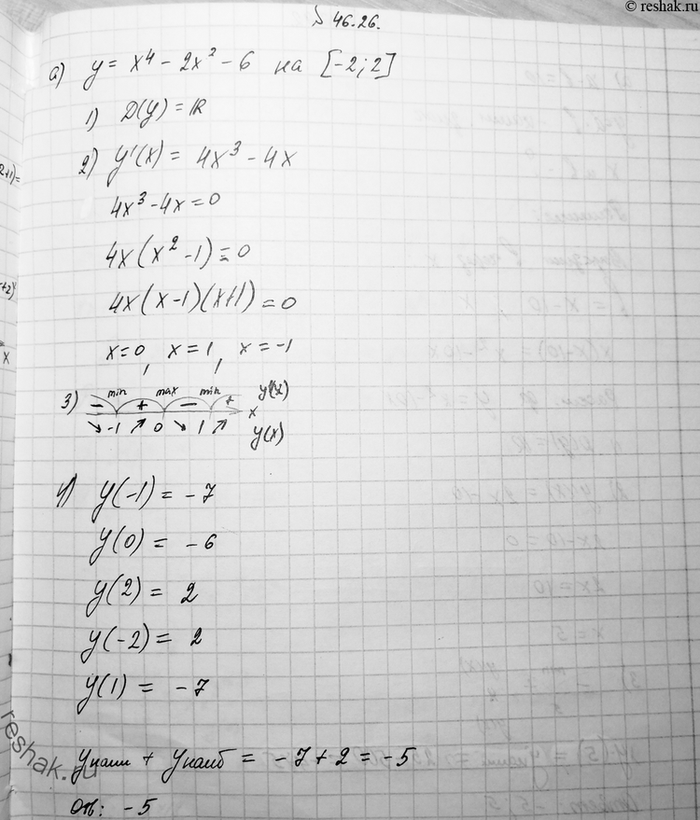 © reshak.ru
§ 46.26.
а) y = x⁴ - 2x² - 6 на [-2; 2]
1) D(y) = R
2) y'(x) = 4x³ - 4x
4x³ - 4x = 0
4x(x² - 1) = 0
4x(x - 1)(x + 1) = 0
x = 0, x = 1, x = -1
3) min max min y'(x)
- + - + x
↘ -1 ↗ 0 ↘ 1 ↗ y(x)
4) y(-1) = -7
y(0) = -6
y(2) = 2
y(-2) = 2
y(1) = -7
yнаим + yнаиб = -7 + 2 = -5
Отв: -5
reshak.ru